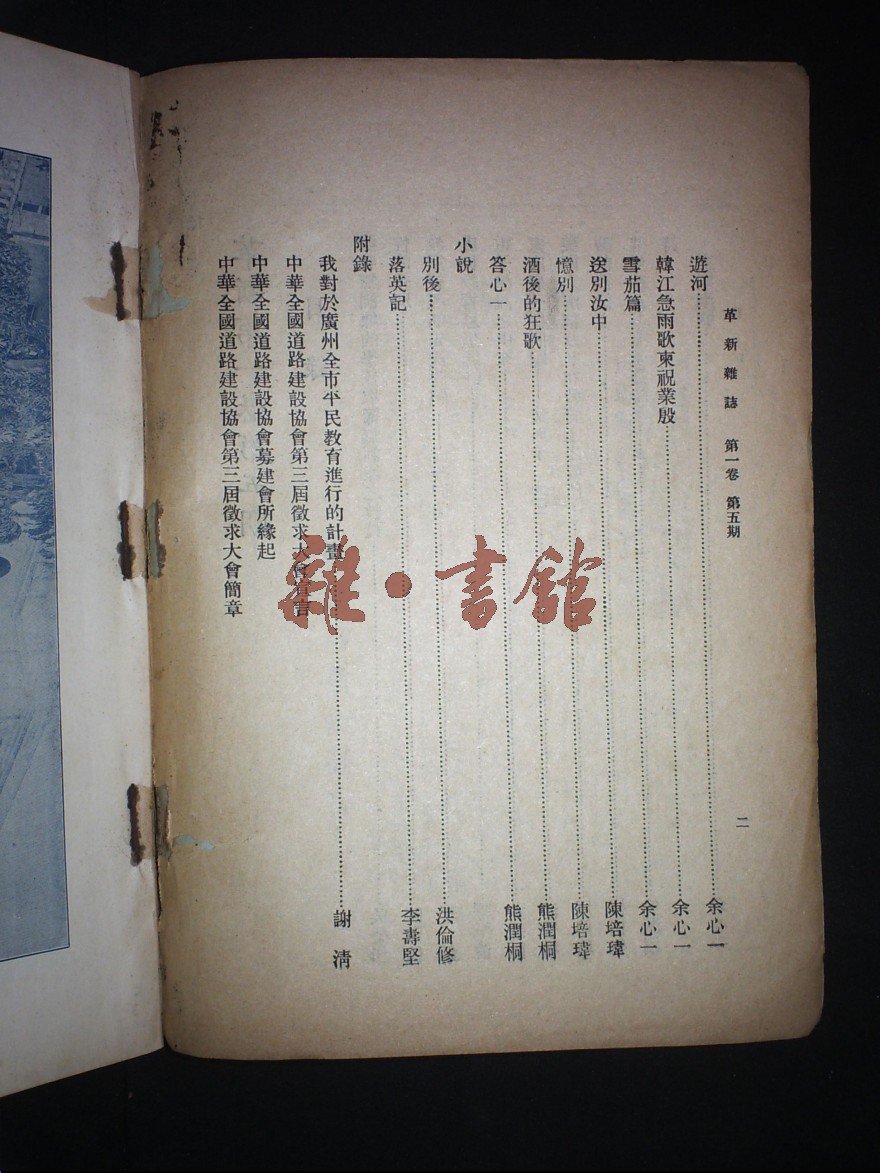 革新雜誌 第一卷 第五期 二
遊河 余心一
韓江急雨歌柬祝業殷 余心一
雪茄篇 余心一
送別汝中 陳培瑋
憶別 陳培瑋
酒後的狂歌 熊潤桐
答心一 熊潤桐
小說
別後 洪倫修
落英記 李壽堅
附錄
我對於廣州全市平民教育進行的計畫 謝清
中華全國道路建設協會第三屆徵求大會宣言
中華全國道路建設協會募建會所緣起
中華全國道路建設協會第三屆徵求大會簡章
雜·書館